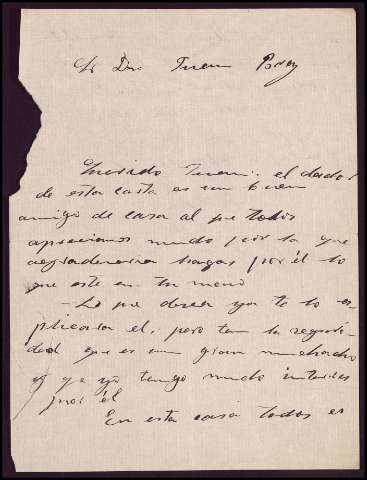 Sr Dn Juan
Querido Juan: el dador
de esta carta es un buen
amigo de casa al que todos
apreciamos mucho por lo que
agradeceria hagas por él lo
que este en tu mano
- Lo que desea ya te lo es-
plicara el, pero ten la seguri-
dad que es un gran muchacho
y que yo tengo mucho interes
por él
En esta casa todos es